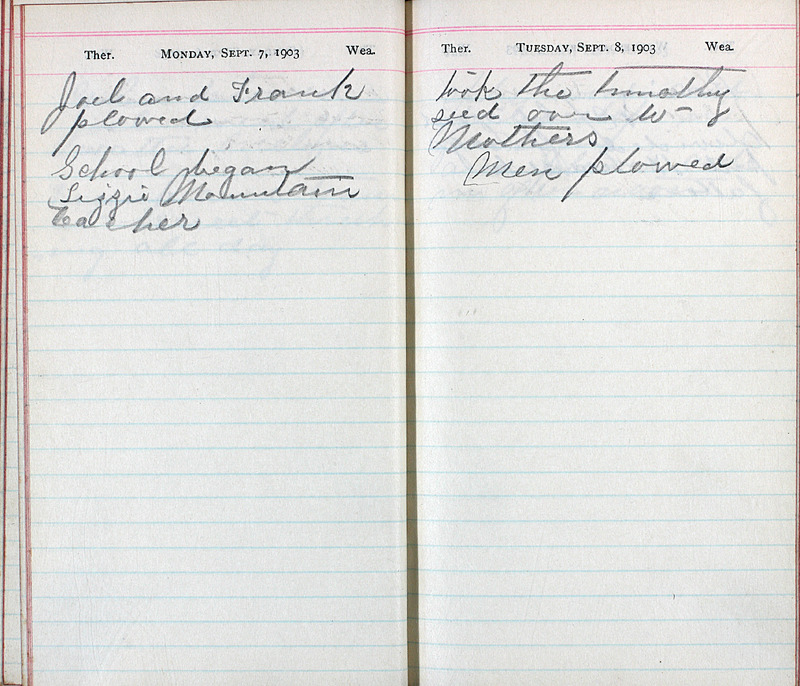 Ther. MONDAY, SEPT. 7, 1903 Wea.
Joel and Frank
plowed
School began
Lizzie Mountain
teacher
Ther. TUESDAY, SEPT. 8, 1903 Wea.
took the timothy
seed over to
Mothers
Men plowed